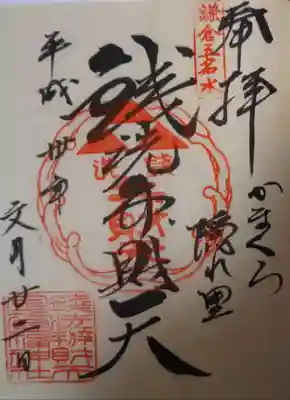 奉拝
鎌倉五名水
かまくら
隠れ里
銭洗弁財天
平成卅年
文月廿二日